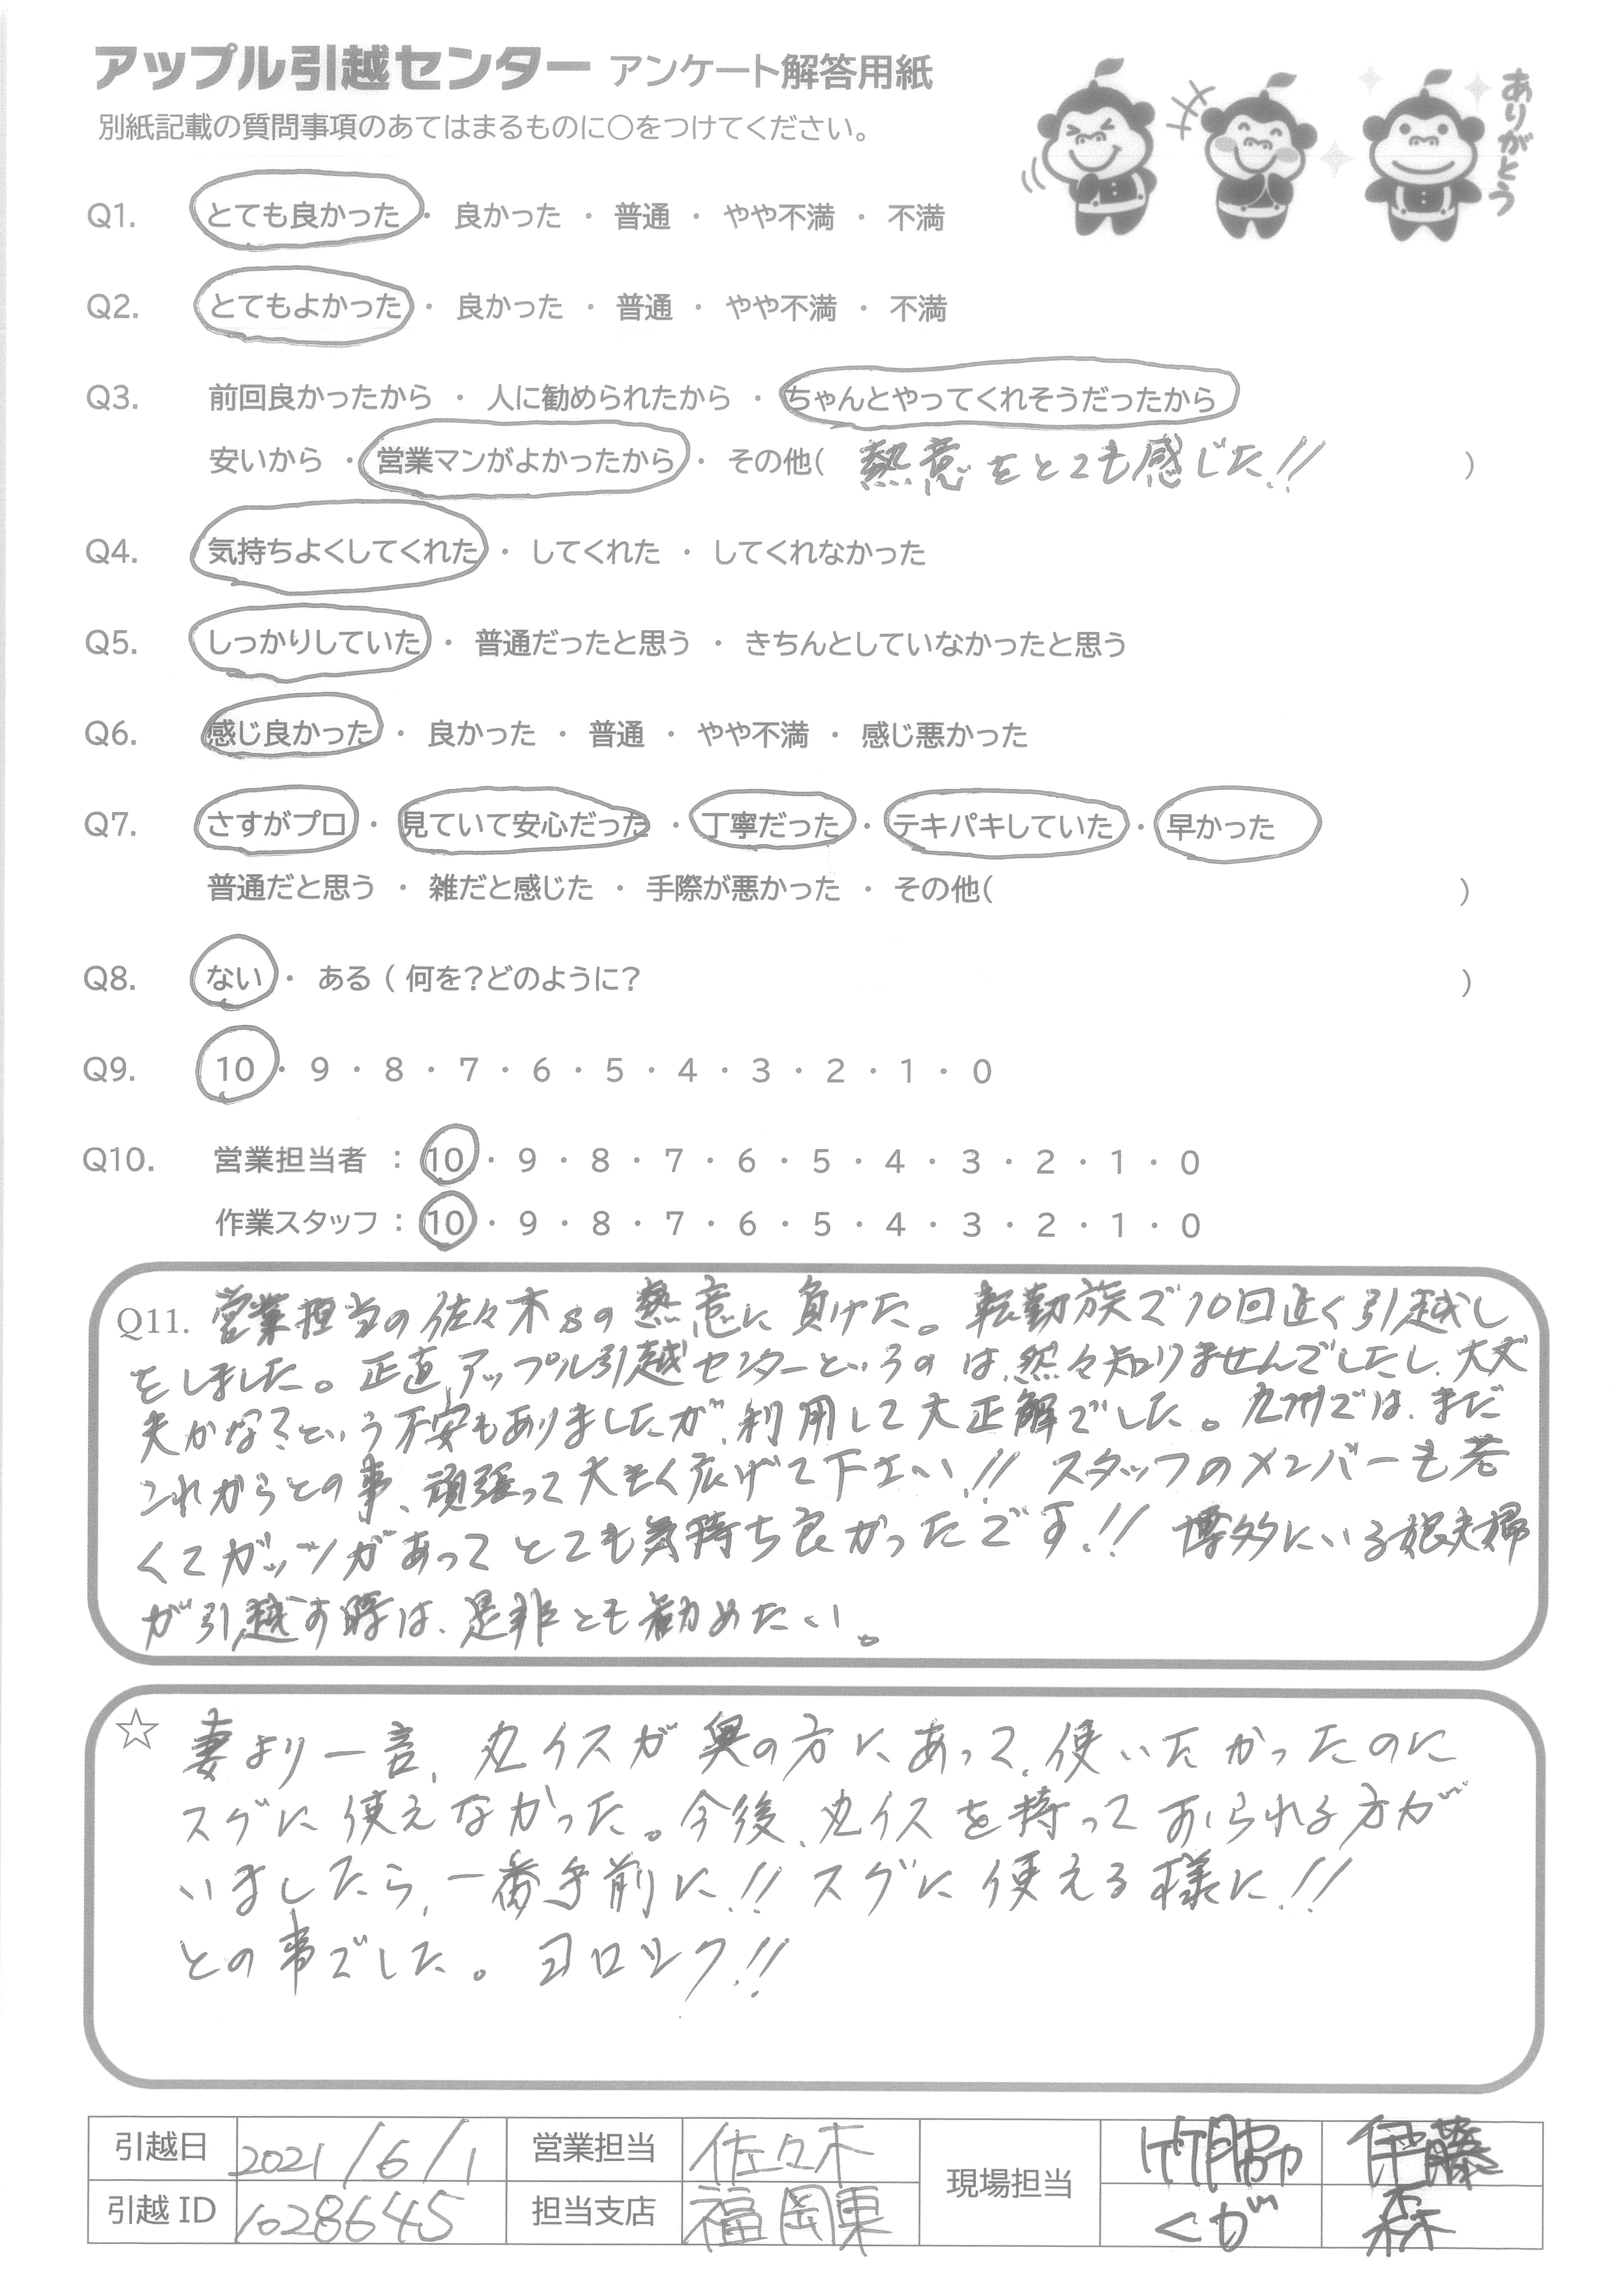 アップル引越センター アンケート解答用紙
別紙記載の質問事項のあてはまるものに○をつけてください。
ありがとう
Q1. とても良かった ・ 良かった ・ 普通 ・ やや不満 ・ 不満
Q2. とてもよかった ・ 良かった ・ 普通 ・ やや不満 ・ 不満
Q3. 前回良かったから ・ 人に勧められたから ・ ちゃんとやってくれそうだったから
安いから ・ 営業マンがよかったから ・ その他( 熱意をとても感じた!! )
Q4. 気持ちよくしてくれた ・ してくれた ・ してくれなかった
Q5. しっかりしていた ・ 普通だったと思う ・ きちんとしていなかったと思う
Q6. 感じ良かった ・ 良かった ・ 普通 ・ やや不満 ・ 感じ悪かった
Q7. さすがプロ ・ 見ていて安心だった ・ 丁寧だった ・ テキパキしていた ・ 早かった
普通だと思う ・ 雑だと感じた ・ 手際が悪かった ・ その他( )
Q8. ない ・ ある ( 何を?どのように? )
Q9. 10 ・ 9 ・ 8 ・ 7 ・ 6 ・ 5 ・ 4 ・ 3 ・ 2 ・ 1 ・ 0
Q10. 営業担当者 : 10 ・ 9 ・ 8 ・ 7 ・ 6 ・ 5 ・ 4 ・ 3 ・ 2 ・ 1 ・ 0
作業スタッフ : 10 ・ 9 ・ 8 ・ 7 ・ 6 ・ 5 ・ 4 ・ 3 ・ 2 ・ 1 ・ 0
Q11. 営業担当の佐々木sの熱意に負けた。転勤族で10回近く引越し
をしました。正直、アップル引越センターというのは、然々知りませんでしたし、大丈
夫かな?という不安もありましたが、利用して大正解でした。九州では、まだ
これからとの事、頑張って大きく広げて下さい!! スタッフのメンバーも若
くてガッツがあってとても気持ち良かったです!! 博多にいる娘夫婦
が引越す時は、是非とも勧めたい。
☆ 妻より一言、丸イスが奥の方にあって、使いたかったのに
スグに使えなかった。今後、丸イスを持っておられる方が
いましたら、一番手前に!! スグに使える様に!!
との事でした。ヨロシク!!
引越日 2021/6/1 営業担当 佐々木 現場担当 竹脇 伊藤
引越ID 1028645 担当支店 福岡東 くが 森